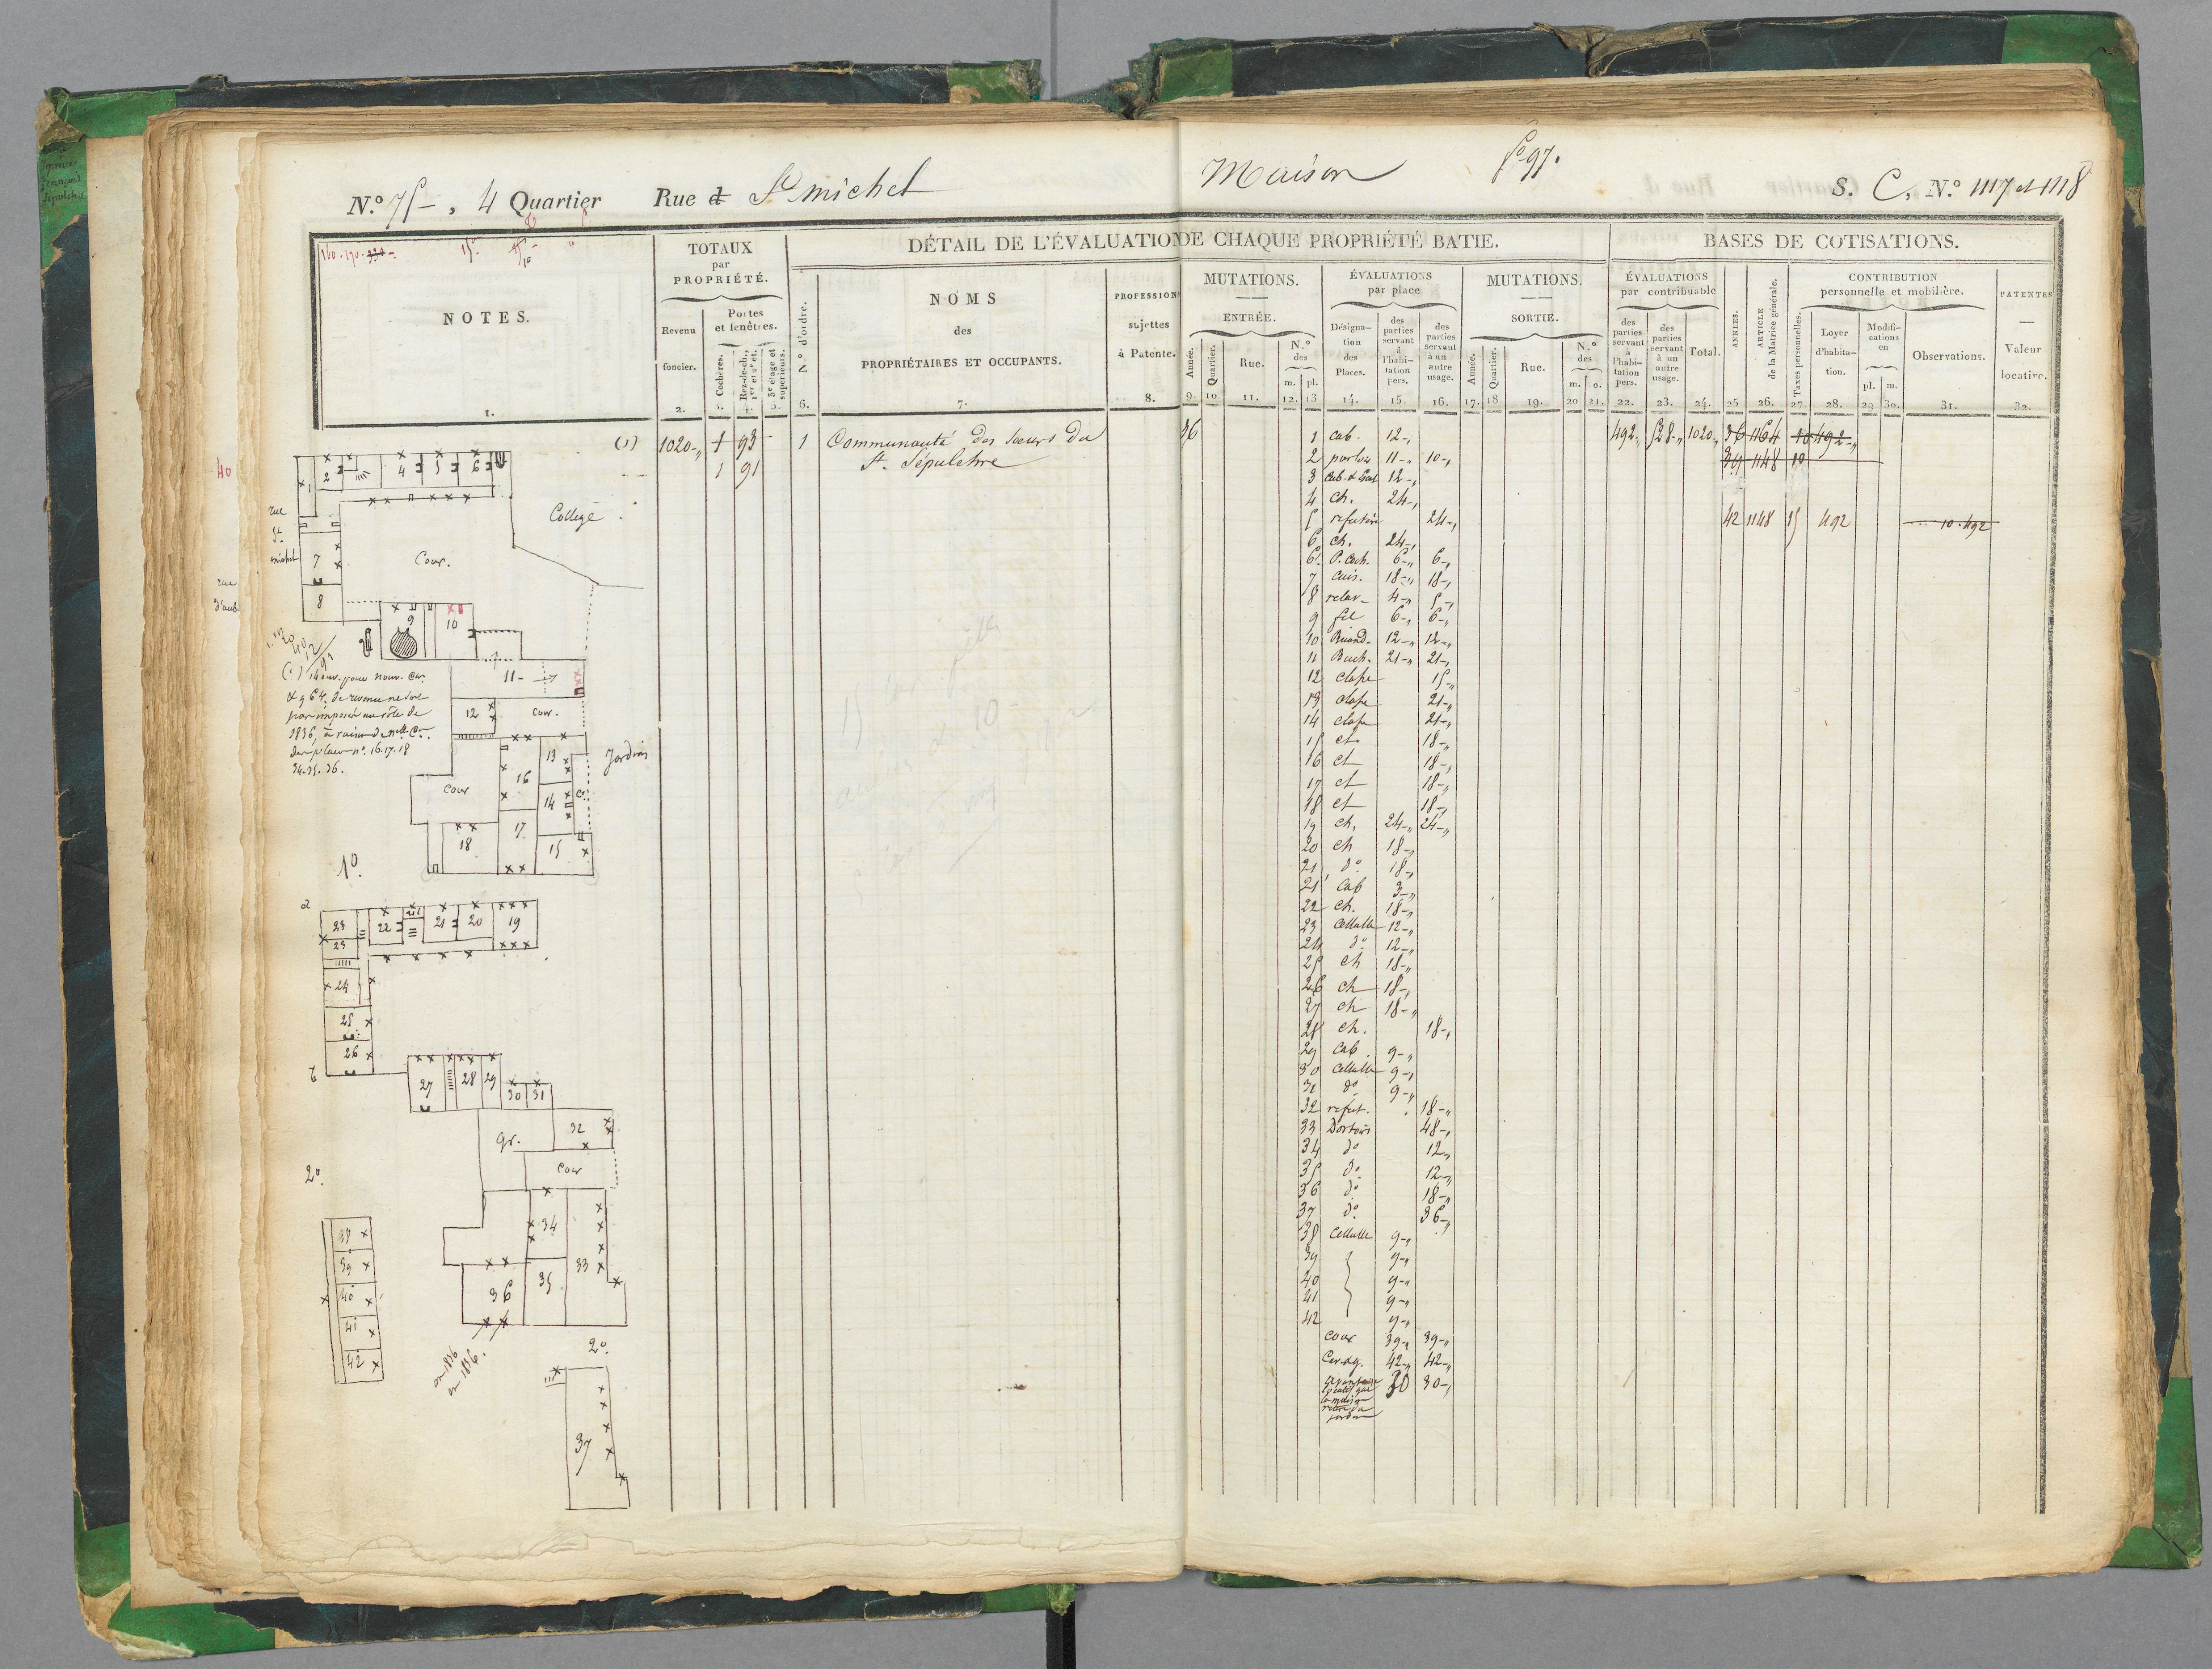 N.º 75, 4 Quartier Rue de St michel
Maison
fº 97.
S. C, N.º 1117 et 1118
160 . 170 . 330
NOTES.
1.
TOTAUX
par
PROPRIÉTÉ.
Revenu
foncier.
2.
Portes
et fenêtres.
Cochères.
3.
Rez-de-ch.,
1er et 2e ét.
4.
3e étage et
supérieurs.
5.
DÉTAIL DE L'ÉVALUATION DE CHAQUE PROPRIÉTÉ BATIE.
N.º d'ordre.
6.
NOMS
des
PROPRIÉTAIRES ET OCCUPANTS.
7.
PROFESSIONS
sujettes
à Patente.
8.
MUTATIONS.
ENTRÉE.
Année.
9.
Quartier.
10.
Rue.
11.
N.º
des
m. pl.
12. 13
ÉVALUATIONS
par place
Désigna-
tion
des
Places.
14.
des
parties
servant
à
l'habi-
tation
pers.
15.
des
parties
servant
à un
autre
usage.
16.
MUTATIONS.
SORTIE.
Année.
17.
Quartier.
18
Rue.
19.
N.º
des
m. o.
20 21.
BASES DE COTISATIONS.
ÉVALUATIONS
par contribuable
des
parties
servant
à
l'habi-
tation
pers.
22.
des
parties
servant
à un
autre
usage.
23.
Total.
24.
ANNÉES.
25
ARTICLE
de la Matrice générale.
26.
CONTRIBUTION
personnelle et mobilière.
Taxes personnelles.
27
Loyer
d'habita-
tion.
28.
Modifi-
cations
en
pl. m.
29 30.
Observations.
31.
PATENTES
Valeur
locative.
32.
(1) 1020-" 1 93 1 Communauté des sœurs du
1 91 St. Sépulchre
36
492-" 528-" 1020-" 36 1164 10 492-"
39 1148 10
42 1148 15 492 10-492
1 cab. 12-"
2 parloir 11-" 10-"
3 12-"
4 ch. 24-"
5 refectoire 24-"
6 ch. 24-"
6' P. coch. 6-" 6-"
7 cuis. 18-" 18-"
8 relav- 4-" 5-"
9 6-" 6-"
10 Buand- 12-" 12-"
11 Buch. 21-" 21-"
12 clape 15-"
13 clape 21-"
14 clape 21-"
15 18-"
16 18-"
17 18-"
18 18-"
19 ch. 24-" 24-"
20 ch 18-"
21 dº 18-"
21' cab 3-"
22 ch. 18-"
23 Cellulle 12-"
24 dº 12-"
25 ch 18-"
26 ch 18-"
27 ch 18-"
28 ch. 18-"
29 cab. 9-"
30 Cellulle 9-"
31 dº 9-"
32 refect. 18-"
33 Dortoir 48-"
34 dº 12-"
35 dº 12-"
36 dº 18-"
37 dº 36-"
38 Cellulle 9-"
39 9-"
40 9-"
41 9-"
42 9-"
cour 39-" 39-"
42-" 42-"
30 30-"
jardin
40
1
2
4
5
6
rue
St
michel
rue
d'aub
College
Cour.
7
8
9
10
11
12
Cour.
13
14
15
16
17
18
cour
Jardin
(1) 14 ouv. pour nouv. Con
& 96 fr. de revenu ne sont
pas imposés au rôle de
1836, à raison de nlle Con.
des places nº. 16.17.18
34.35.36.
1º.
a
23
23
22
21'
21
20
19
24
25
26
b
27
28
29
30
31
gr.
32
Cour
2º.
34
33
35
36
38
39
40
41
42
en 1836.
2º.
37